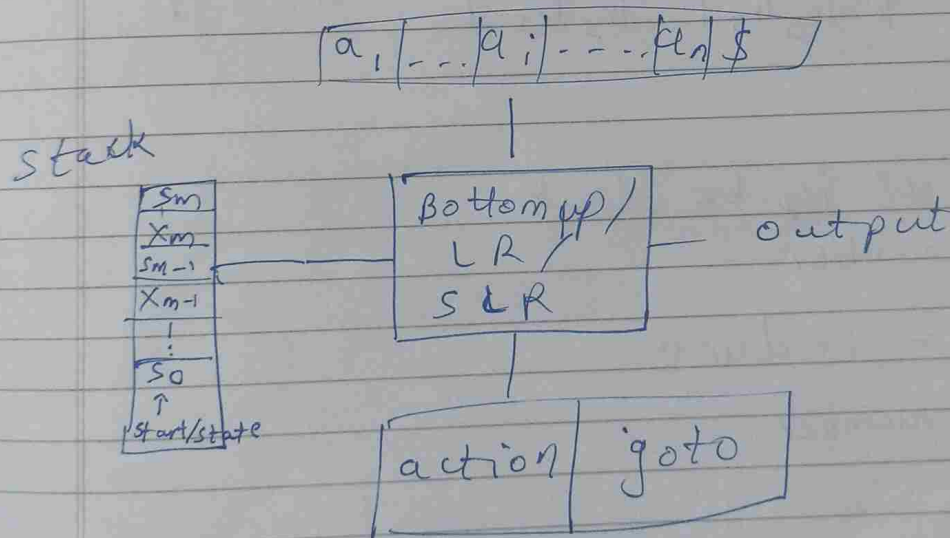 a1 ... ai ---- an $
stack
Sm
Xm
Sm-1
Xm-1
⋮
S0
↑
start/state
Bottom up/
LR/
SLR
output
action goto